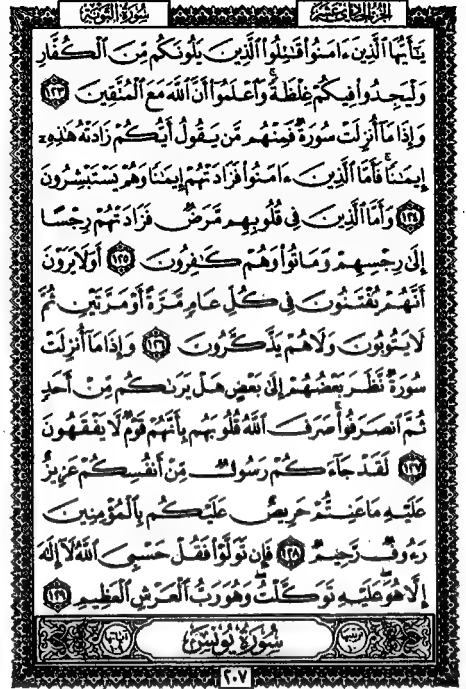 الجزء الحادي عشر
سُورَةُ التَّوْبَةِ
يَٰٓأَيُّهَا ٱلَّذِينَ ءَامَنُوا۟ قَٰتِلُوا۟ ٱلَّذِينَ يَلُونَكُم مِّنَ ٱلْكُفَّارِ
وَلْيَجِدُوا۟ فِيكُمْ غِلْظَةً ۚ وَٱعْلَمُوٓا۟ أَنَّ ٱللَّهَ مَعَ ٱلْمُتَّقِينَ ١٢٣
وَإِذَا مَآ أُنزِلَتْ سُورَةٌ فَمِنْهُم مَّن يَقُولُ أَيُّكُمْ زَادَتْهُ هَٰذِهِۦٓ
إِيمَٰنًا ۚ فَأَمَّا ٱلَّذِينَ ءَامَنُوا۟ فَزَادَتْهُمْ إِيمَٰنًا وَهُمْ يَسْتَبْشِرُونَ
١٢٤ وَأَمَّا ٱلَّذِينَ فِى قُلُوبِهِم مَّرَضٌ فَزَادَتْهُمْ رِجْسًا
إِلَىٰ رِجْسِهِمْ وَمَاتُوا۟ وَهُمْ كَٰفِرُونَ ١٢٥ أَوَلَا يَرَوْنَ
أَنَّهُمْ يُفْتَنُونَ فِى كُلِّ عَامٍ مَّرَّةً أَوْ مَرَّتَيْنِ ثُمَّ
لَا يَتُوبُونَ وَلَا هُمْ يَذَّكَّرُونَ ١٢٦ وَإِذَا مَآ أُنزِلَتْ
سُورَةٌ نَّظَرَ بَعْضُهُمْ إِلَىٰ بَعْضٍ هَلْ يَرَىٰكُم مِّنْ أَحَدٍ
ثُمَّ ٱنصَرَفُوا۟ ۚ صَرَفَ ٱللَّهُ قُلُوبَهُم بِأَنَّهُمْ قَوْمٌ لَّا يَفْقَهُونَ
١٢٧ لَقَدْ جَآءَكُمْ رَسُولٌ مِّنْ أَنفُسِكُمْ عَزِيزٌ
عَلَيْهِ مَا عَنِتُّمْ حَرِيصٌ عَلَيْكُم بِٱلْمُؤْمِنِينَ
رَءُوفٌ رَّحِيمٌ ١٢٨ فَإِن تَوَلَّوْا۟ فَقُلْ حَسْبِىَ ٱللَّهُ لَآ إِلَٰهَ
إِلَّا هُوَ ۖ عَلَيْهِ تَوَكَّلْتُ ۖ وَهُوَ رَبُّ ٱلْعَرْشِ ٱلْعَظِيمِ ١٢٩
سُورَةُ يُونُسَ
٢٠٧